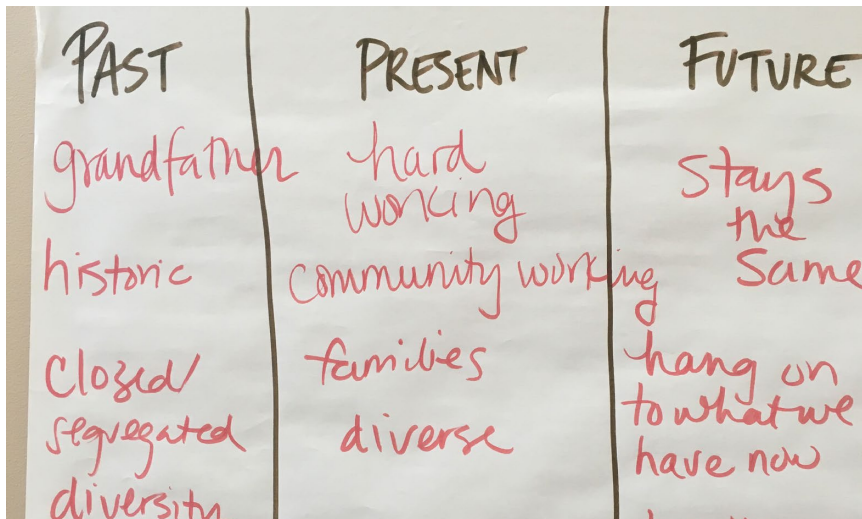 PAST
grandfather
historic
closed/
segregated
diversity
PRESENT
hard
working
community working
families
diverse
FUTURE
stays
the
same
hang on
to what we
have now